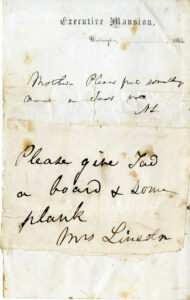 Executive Mansion,
Washington, 186
Mother Please put something
around
A.L.
Please give Tad
a board & some
plank
Mrs Lincoln